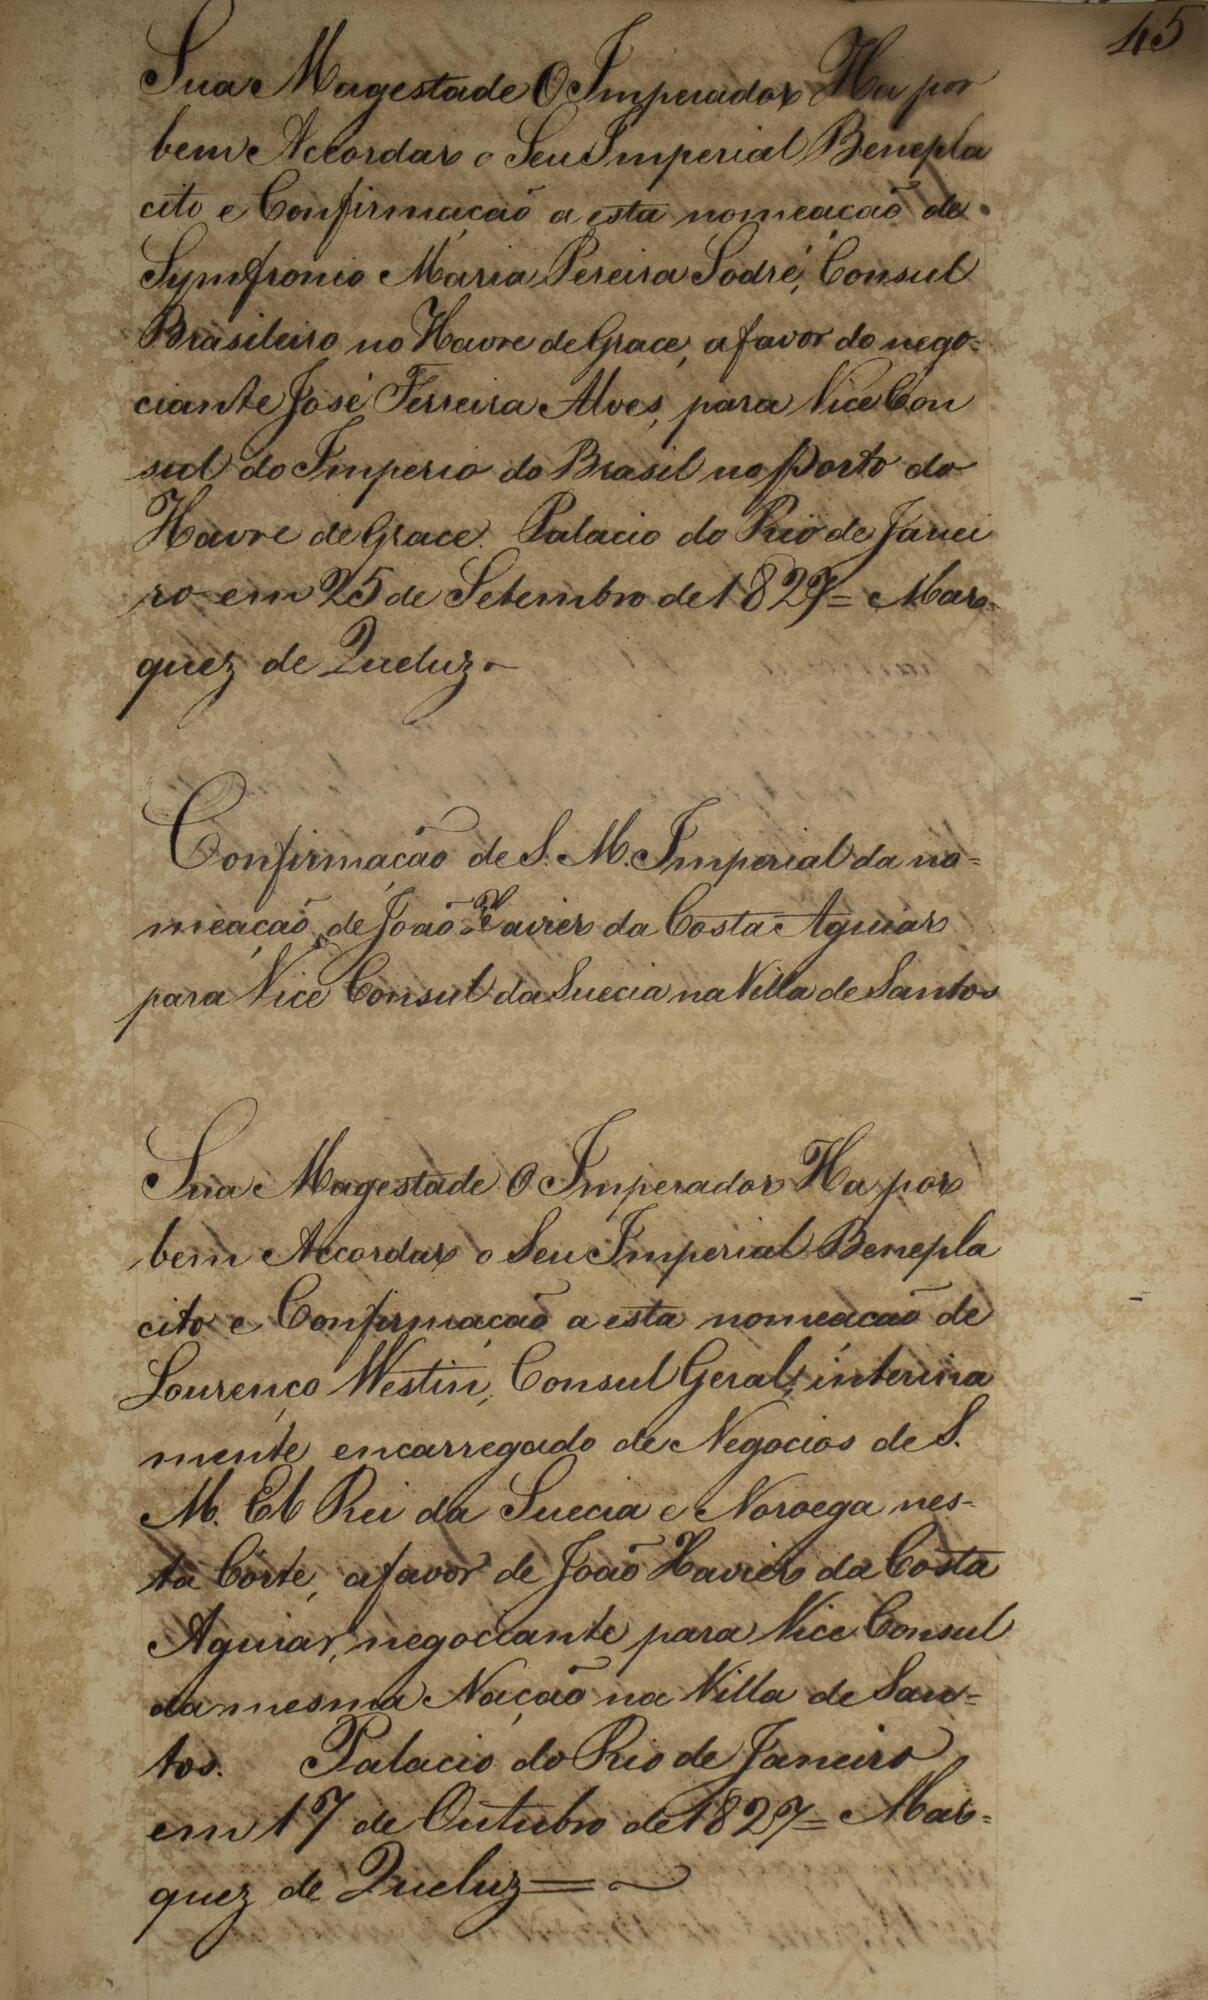 45
Sua Magestade O Imperador Ha por
bem Accordar o Seu Imperial Benepla
cito e Confirmação a esta nomeação de
Symfronio Maria Pereira Sodré, Consul
Brasileiro no Havre de Grace, a favor do nego-
ciante José Ferreira Alves, para Vice Con
sul do Imperio do Brasil no porto do
Havre de Grace. Palacio do Rio de Janei
ro em 25 de Setembro de 1827= Mar-
quez de Queluz.-
Confirmação de S. M. Imperial da no=
meação de João Xavier da Costa Aguiar
para Vice Consul da Suecia na Villa de Santos
Sua Magestade O Imperador Ha por
bem Accordar o Seu Imperial Benepla
cito e Confirmação a esta nomeação de
Lourenço Westin, Consul Geral, interina
mente encarregado de Negocios de S.
M. El Rei da Suecia e Noroega nes-
ta Côrte, a favor de João Xavier da Costa
Aguiar, negociante para Vice Consul
da mesma Nação na Villa de San=
tos. Palacio do Rio de Janeiro
em 17 de Outubro de 1827= Mar=
quez de Queluz=